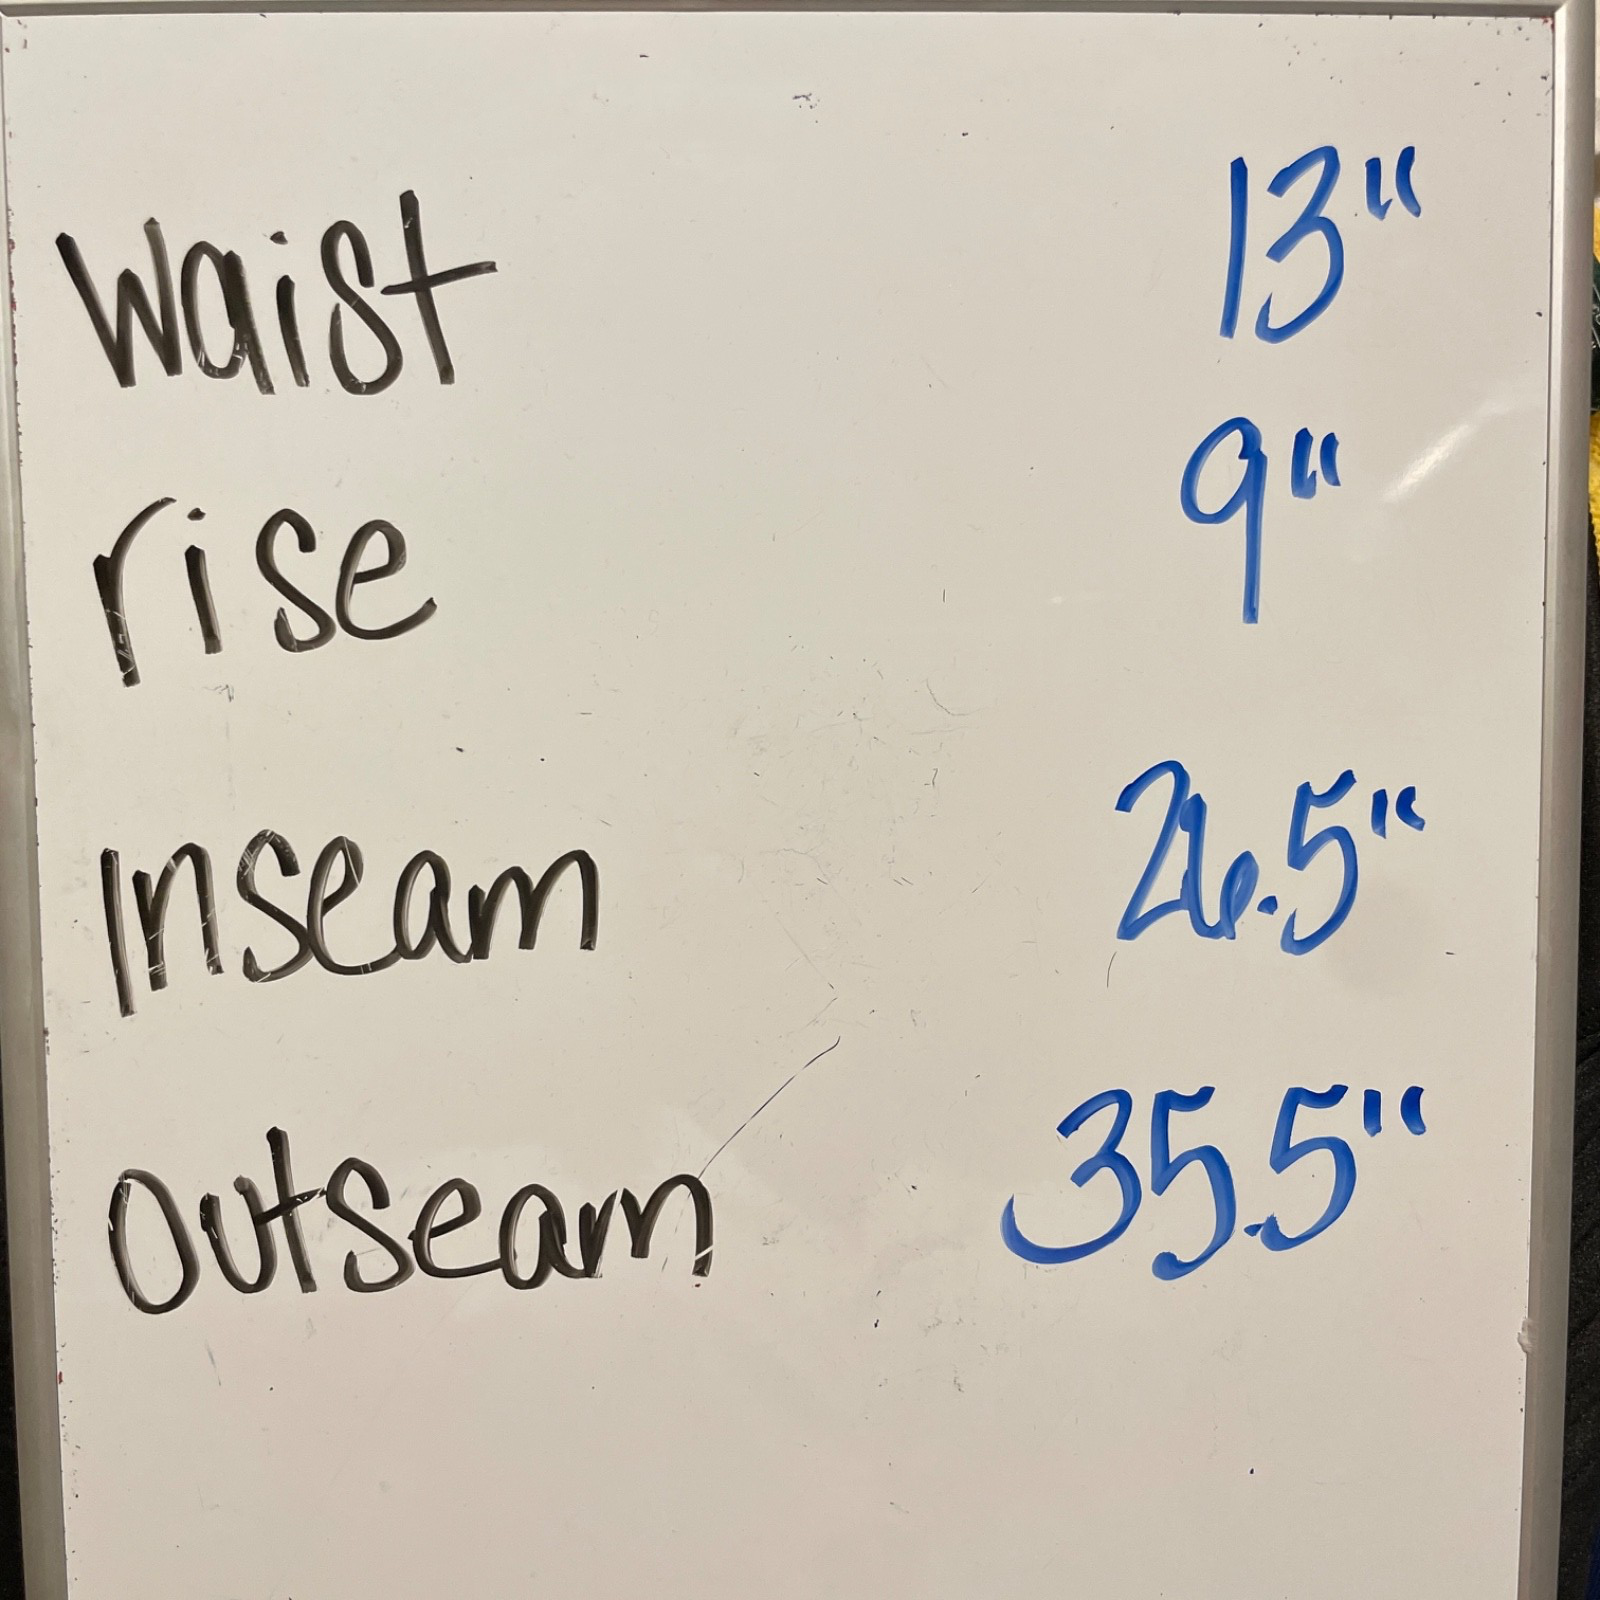 waist 13"
rise 9"
Inseam 26.5"
Outseam 35.5"